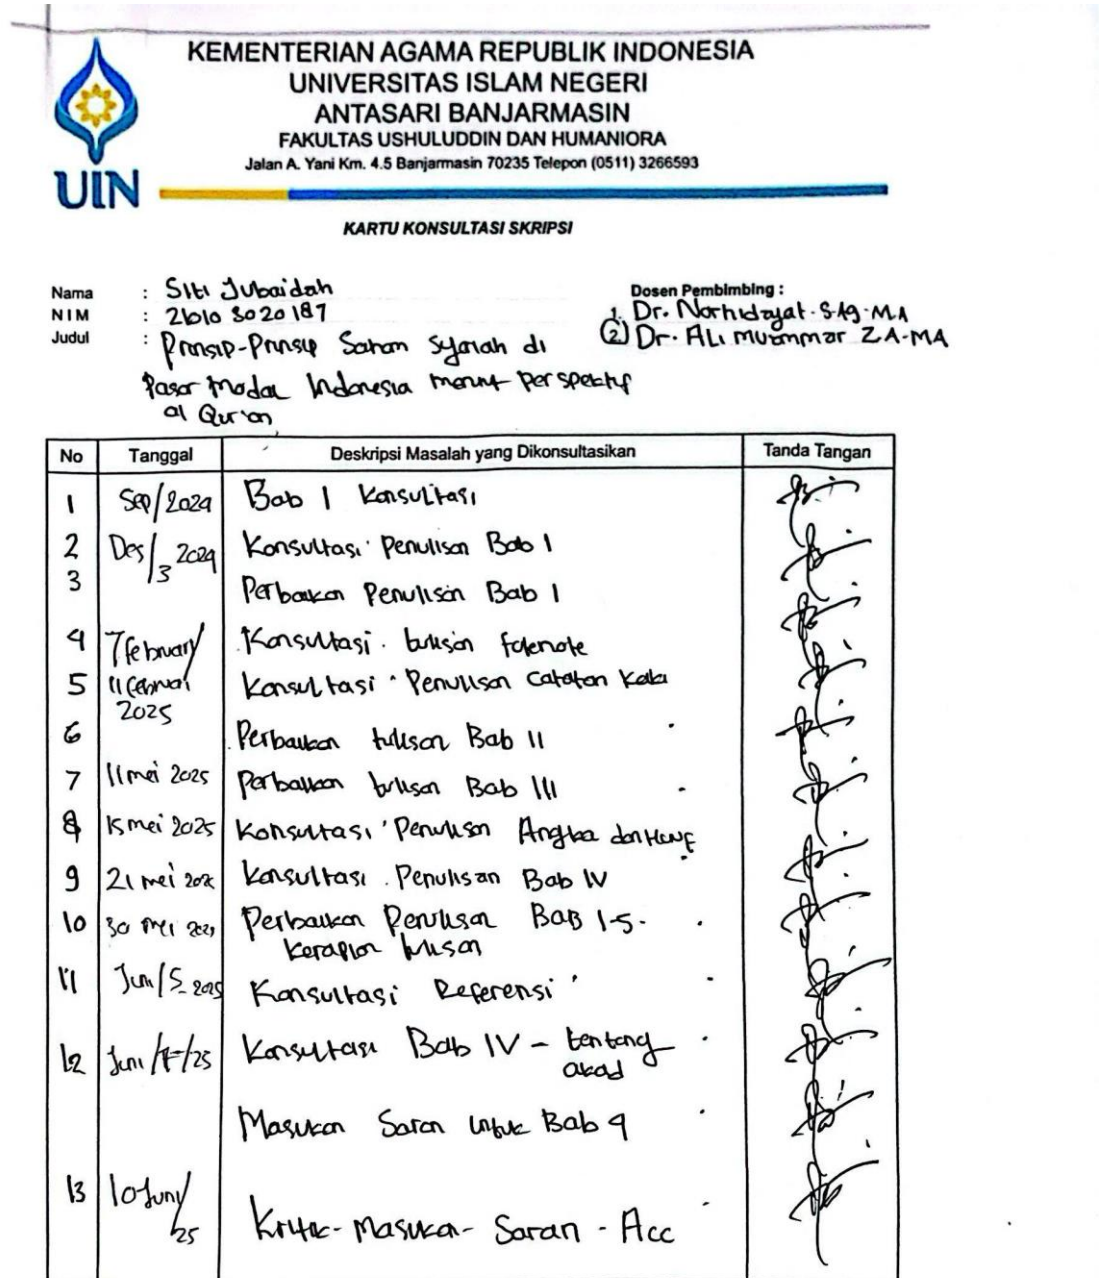 KEMENTERIAN AGAMA REPUBLIK INDONESIA
UNIVERSITAS ISLAM NEGERI
ANTASARI BANJARMASIN
FAKULTAS USHULUDDIN DAN HUMANIORA
Jalan A. Yani Km. 4.5 Banjarmasin 70235 Telepon (0511) 3266593
UIN
KARTU KONSULTASI SKRIPSI
Nama : Siti Jubaidah
NIM : 21010 3020 187
Judul : Prinsip-Prinsip Saham Syariah di
Pasar Modal Indonesia menurut Perspektif
al Qur'an
Dosen Pembimbing :
1. Dr. Norhidayat. S.Ag. M.A
2) Dr. Ali Muammar ZA-MA
No Tanggal Deskripsi Masalah yang Dikonsultasikan Tanda Tangan
1 Sep/2024 Bab 1 Konsultasi
2 Des/3 2024 Konsultasi Penulisan Bab 1
3 Perbaikan Penulisan Bab 1
4 7 february/ Konsultasi tulisan fotenote
5 11 februari Konsultasi Penulisan Catatan Kaki
2025
6 Perbaikan tulisan Bab II
7 11 mei 2025 Perbaikan tulisan Bab III
8 15 mei 2025 Konsultasi Penulisan Angka dan Huruf
9 21 mei Konsultasi Penulisan Bab IV
10 30 mei Perbaikan Penulisan BAB 1-5.
Kerapian tulisan
11 Juni/5-2025 Konsultasi Referensi
12 Juni/ /25 Konsultasi Bab IV - tentang
akad
Masukan Saran untuk Bab 4
13 10 Juny/ 25 Kritik - Masukan - Saran - Acc